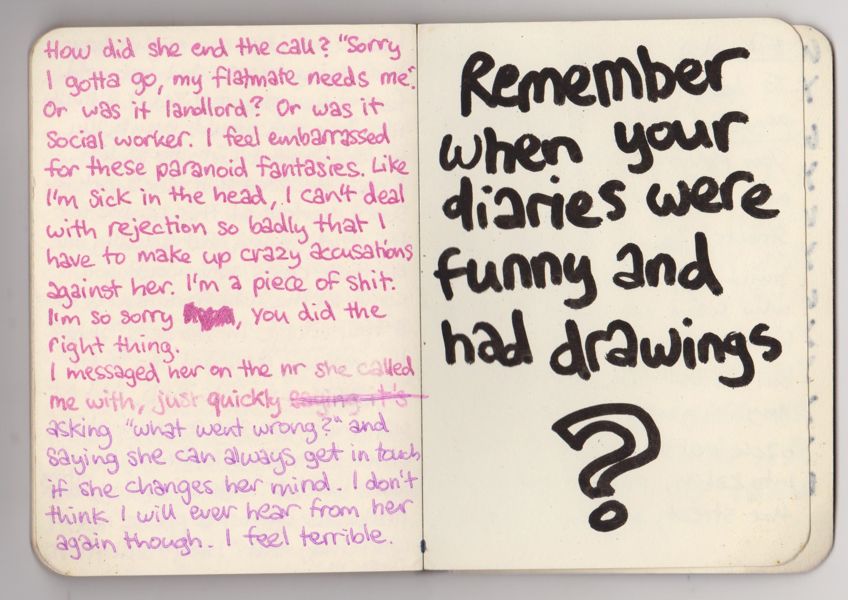 How did she end the call? "Sorry
I gotta go, my flatmate needs me".
Or was it landlord? Or was it
social worker. I feel embarrassed
for these paranoid fantasies. Like
I'm sick in the head, I can't deal
with rejection so badly that I
have to make up crazy accusations
against her. I'm a piece of shit.
I'm so sorry , you did the
right thing.
I messaged her on the nr she called
me with, just quickly saying it's
asking "what went wrong?" and
saying she can always get in touch
if she changes her mind. I don't
think I will ever hear from her
again though. I feel terrible.
Remember
when your
diaries were
funny and
had drawings
?